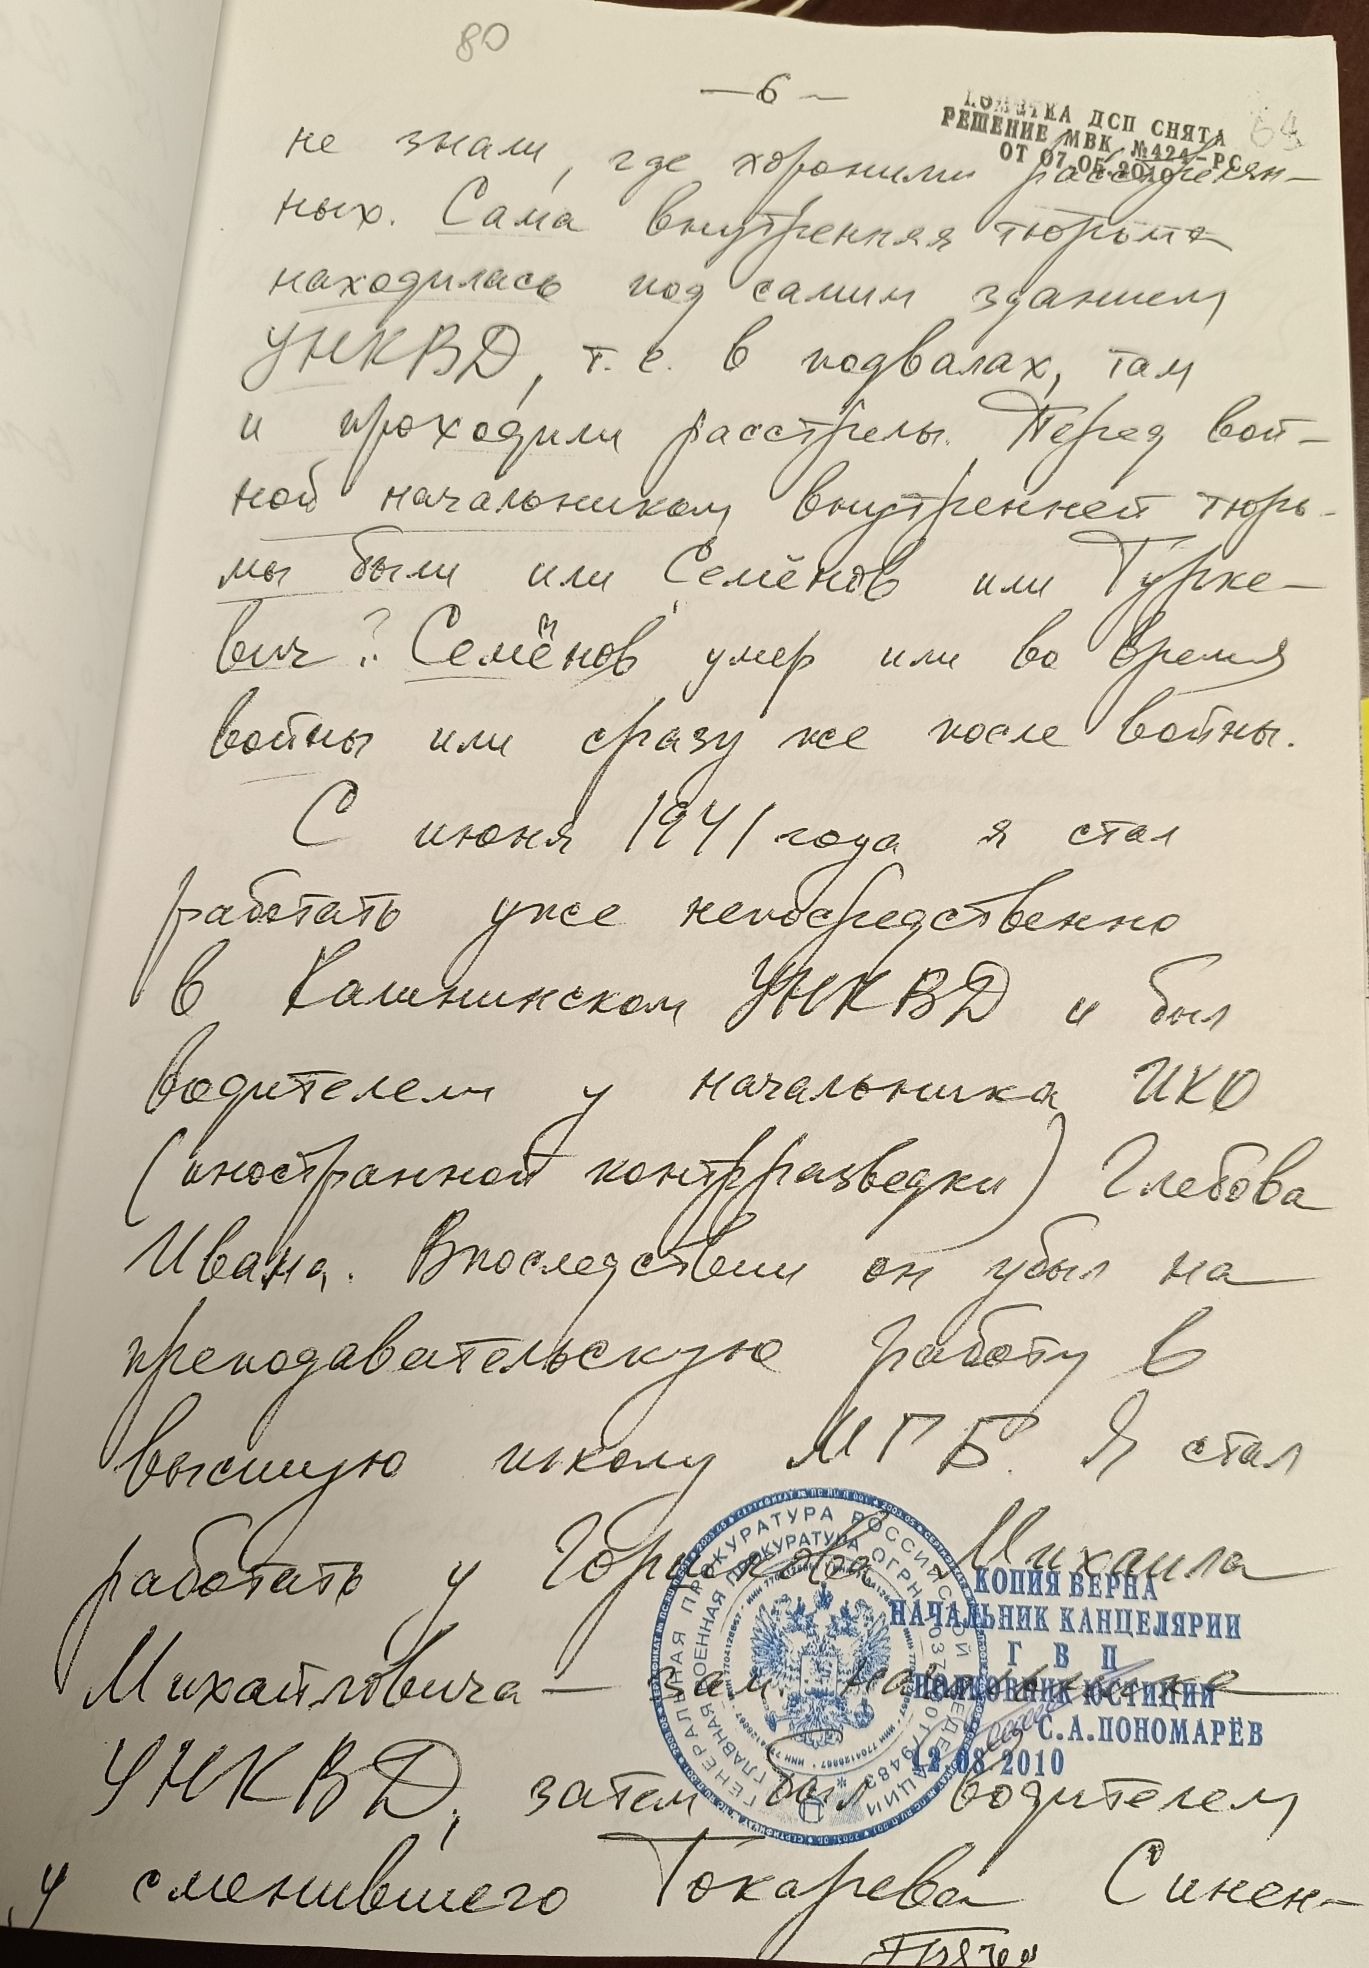 80
— 6 —
ПОМЕТКА ДСП СНЯТА
РЕШЕНИЕ МВК №424-РС
ОТ 07.05.2010
не знали, где хоронили расстрелян-
ных. Сама внутренняя тюрьма
находилась под самим зданием
УНКВД, т.е. в подвалах, там
и проходили расстрелы. Перед вой-
ной начальником внутренней тюрь-
мы были или Семёнов или Турке-
вич? Семёнов умер или во время
войны или сразу же после войны.
С июня 1941 года я стал
работать уже непосредственно
в Калининском УНКВД и был
водителем у начальника ИКО
(иностранной контрразведки) Глебова
Ивана. Впоследствии он убыл на
преподавательскую работу в
высшую школу МГБ. Я стал
работать у Михаила
Михайловича — зам. начальника
УНКВД, затем был водителем
у сменившего Токарева Синен-
ГЕНЕРАЛЬНАЯ ПРОКУРАТУРА РОССИЙСКОЙ ФЕДЕРАЦИИ
ГЛАВНАЯ ВОЕННАЯ ПРОКУРАТУРА
КОПИЯ ВЕРНА
НАЧАЛЬНИК КАНЦЕЛЯРИИ
Г В П
ПОЛКОВНИК ЮСТИЦИИ
С.А.ПОНОМАРЁВ
12 08 2010